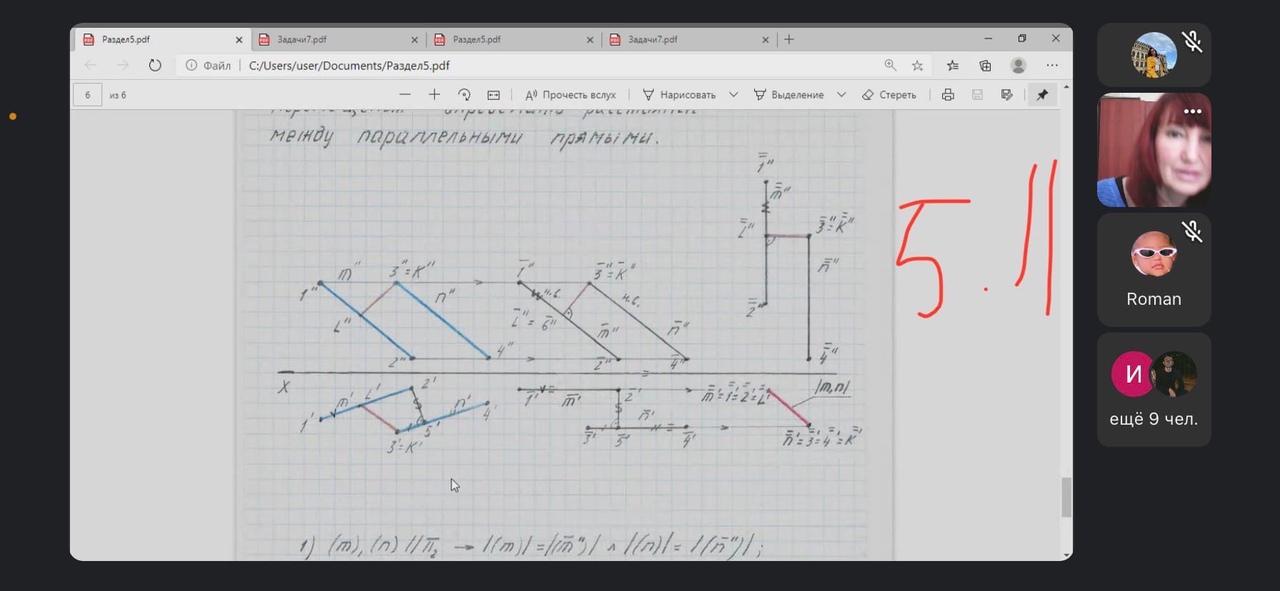 Раздел5.pdf
Задачи7.pdf
Раздел5.pdf
Задачи7.pdf
Файл
C:/Users/user/Documents/Раздел5.pdf
6
из 6
Прочесть вслух
Нарисовать
Выделение
Стереть
между параллельными прямыми.
5.11
1"
m"
3"≡K"
n"
L"
2"
4"
X
1'
m'
L'
2'
3'≡K'
5'
n'
4'
1̄"
3̄"≡K̄"
н.в.
н.в.
L̄"≡ 6̄"
m̄"
n̄"
2̄"
4̄"
1̄'
m̄'
2̄'
n̄'
3̄'
5̄'
4̄'
1̿"
m̿"
L̿"
3̿"≡K̿"
n̿"
2̿"
4̿"
m̿'≡1̿'≡2̿'≡L̿'
|m,n|
n̿'≡3̿'≡4̿'≡K̿'
1) (m), (n) // π₂ → |(m)| = |(m̄")| ∧ |(n)| = |(n̄")| ;
Roman
И
ещё 9 чел.